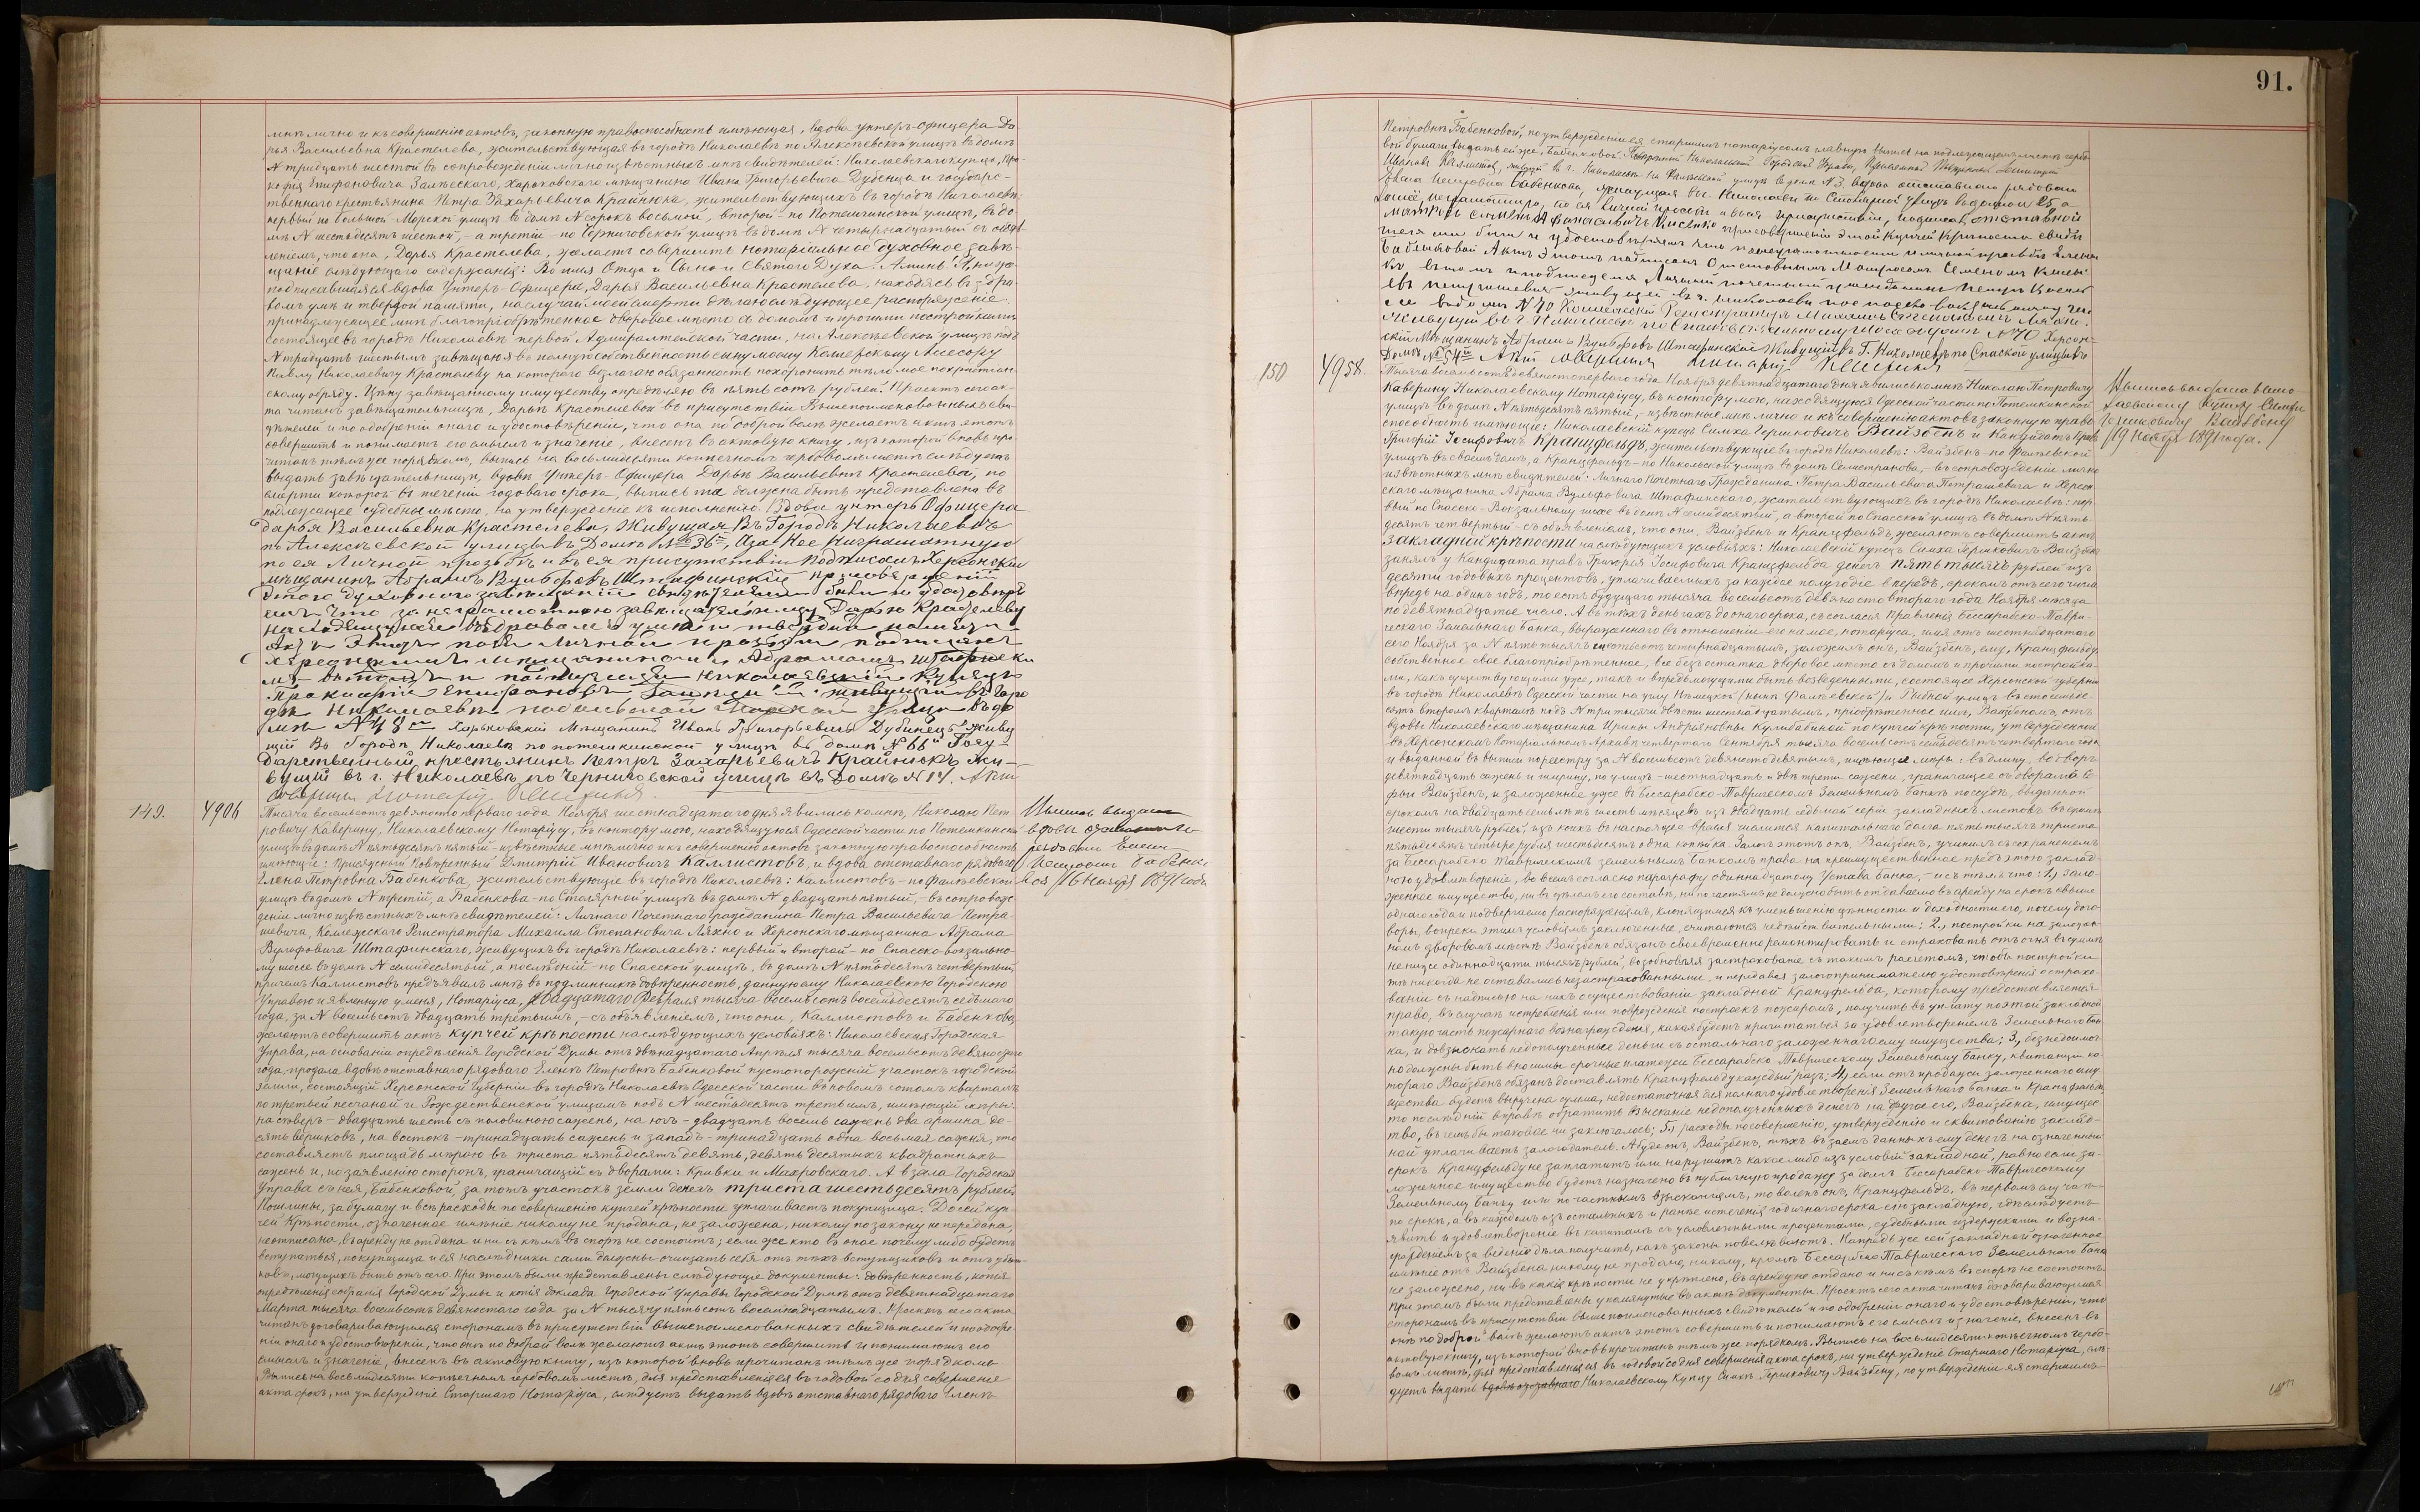 91.
мнѣ лично и къ совершенію актовъ, законную правоспособность имѣющая, вдова унтеръ-офицера Да-
рья Васильевна Крастелева, жительствующая въ городѣ Николаевѣ по Алексѣевской улицѣ въ домѣ
N тридцать шестой въ сопровожденіи лично извѣстныхъ мнѣ свидѣтелей: Николаевскаго купца, Про-
кофія Епифановича Залѣсскаго, Харьковскаго мѣщанина Ивана Григорьевича Дубенца и государс-
твеннаго крестьянина Петра Захарьевича Крайнюка, жительствующихъ въ городѣ Николаевѣ:
первый по Большой-Морской улицѣ въ домѣ N сорокъ восьмой, второй - по Потемкинской улицѣ, въ до-
мѣ N шестьдесятъ шестой, - а третій - по Черниговской улицѣ въ домѣ N четырнадцатый съ объяв-
леніемъ, что она, Дарья Крастелева, желаетъ совершить нотаріальное духовное завѣ-
щаніе слѣдующаго содержанія: Во имя Отца и Сына и Святаго Духа. Аминь. Я, ниже-
подписавшаяся вдова Унтеръ-Офицера, Дарья Васильевна Крастелева, находясь въ здра-
вомъ умѣ и твердой памяти, на случай моей смерти дѣлаю слѣдующее распоряженіе:
принадлежащее мнѣ благопріобрѣтенное дворовое мѣсто съ домомъ и прочими постройками
состоящее въ городѣ Николаевѣ первой Адмиралтейской части, на Алексѣевской улицѣ подъ
N тридцать шестымъ завѣщаю въ полную собственность сыну моему Коллежскому Ассесору
Павлу Николаевичу Крастелеву на котораго возлагаю обязанность похоронить тѣло мое по христіан-
скому обряду. Цѣну завѣщанному имуществу опредѣляю въ пять сотъ рублей. Проектъ сего ак-
та читанъ завѣщательницѣ, Дарьѣ Крастелевой въ присутствіи вышепоименованныхъ сви-
дѣтелей и по одобреніи онаго и удостовѣреніи, что она по доброй волѣ желаетъ актъ этотъ
совершить и понимаетъ его смыслъ и значеніе, внесенъ въ актовую книгу, изъ которой вновь про-
читанъ тѣмъ же порядкомъ, выпись на восьмидесяти копѣечномъ гербовомъ листѣ слѣдуетъ
выдать завѣщательницѣ, вдовѣ Унтеръ-Офицера Дарьѣ Васильевнѣ Крастелевой, по
смерти которой въ теченіи годоваго срока, выпись та должна быть представлена въ
подлежащее судебное мѣсто, на утвержденіе къ исполненію. Вдова унтеръ Офицера
Дарья Васильевна Крастелева, Живущая Въ Городѣ Николаевѣ
по Алексѣевской улицы въ Домѣ № 36й, А за Нее Неграмотную
по ея Личной прозьбѣ и въ ея присутствіи Подписалъ Херсонскій
мѣщанинъ Абрамъ Вульфовъ Штафинскій при совершеніи
этого духовнаго завѣщанія свидѣтелями были и удостовѣря
емъ что за неграмотною завѣщательницу Дарью Крастелеву
находящуюся въ здравомъ умѣ и твердой памяти
Актъ Этотъ по ея Личной прозьбѣ подписалъ
Херсонскимъ мѣщаниномъ Абрамомъ Штафински
мъ въ томъ и подписуемся Николаевскій Купецъ
Прокофій Епифановъ живущій въ Горо
дѣ Николаевѣ по большой Морской Улицѣ въ до
мѣ № 48й Харьковскій Мѣщанинъ Иванъ Григорьевичъ Дубинецъ живу
щій Въ Городѣ Николаевѣ по потемкинской улицѣ въ домѣ № 66й Госу-
дарственный крестьянинъ Петръ Захарьевичъ Крайнюкъ Жи-
вущій въ г. Николаевѣ по Черниговской улицѣ въ Домѣ № 14. Актъ
совершилъ Нотаріусъ
149. 4906 Тысяча восемьсотъ девяносто перваго года Ноября шестнадцатаго дня явились ко мнѣ, Николаю Пет-
ровичу Каверину, Николаевскому Нотаріусу, въ контору мою, находящуюся Одесской части по Потемкинской
улицѣ въ домѣ N пятьдесятъ пятый - извѣстные мнѣ лично и къ совершенію актовъ законную правоспособность
имѣющіе: Присяжный Повѣренный Дмитрій Ивановичъ Каллистовъ, и вдова отставнаго рядоваго
Елена Петровна Бабенкова, жительствующіе въ городѣ Николаевѣ: Каллистовъ - по Фалѣевской
улицѣ въ домѣ N третій, а Бабенкова - по Столярной улицѣ въ домѣ N двадцать пятый, - въ сопровож-
деніи лично извѣстныхъ мнѣ свидѣтелей: Личнаго Почетнаго Гражданина Петра Васильевича Петра-
шевича, Коллежскаго Регистратора Михаила Степановича Ляхно и Херсонскаго мѣщанина Абрама
Вульфовича Штафинскаго, живущихъ въ городѣ Николаевѣ: первый и второй - по Спасско-вокзально-
му шоссе въ домѣ N семидесятый, а послѣдній - по Спасской улицѣ, въ домѣ N пятьдесятъ четвертый,
причемъ Каллистовъ предъявилъ мнѣ въ подлинникѣ довѣренность, данную ему Николаевскою Городскою
Управою и явленную у меня, Нотаріуса, двадцатаго Февраля тысяча восемьсотъ восемьдесятъ седьмаго
года, за N восемьсотъ двадцать третьимъ, - съ объявленіемъ, что они, Каллистовъ и Бабенкова,
желаютъ совершить актъ купчей крѣпости на слѣдующихъ условіяхъ: Николаевская Городская
Управа, на основаніи опредѣленія Городской Думы отъ двѣнадцатаго Апрѣля тысяча восемьсотъ девяностаго
года продала вдовѣ отставнаго рядоваго Еленѣ Петровнѣ Бабенковой пустопорожній участокъ городской
земли, состоящій Херсонской Губерніи въ городѣ Николаевѣ Одесской части въ новомъ сотомъ кварталѣ
по третьей песчаной и Рождественской улицамъ подъ N шестьдесятъ третьимъ, имѣющій мѣры:
на сѣверъ - двадцать шесть съ половиною сажень, на югъ - двадцать восемь сажень два аршина де-
сять вершковъ, на востокъ - тринадцать сажень и западъ - тринадцать одна восьмая сажень, что
составляетъ площадь мѣрою въ триста пятьдесятъ девять, девять десятыхъ квадратныхъ
сажень и, по заявленію сторонъ, граничащій съ дворами: Кривки и Махровскаго. А взяла Городская
Управа съ нея, Бабенковой, за тотъ участокъ земли денегъ триста шестьдесятъ рублей.
Пошлины, за бумагу и всѣ расходы по совершенію купчей крѣпости уплачиваетъ покупщица. До сей куп-
чей Крѣпости, означенное имѣніе никому не продано, не заложено, никому по закону не передано,
неотписано, въ аренду не отдано и ни съ кѣмъ въ спорѣ не состоитъ; если же кто въ оное почему либо будетъ
вступаться, покупщица и ея наслѣдники сами должны очищать себя отъ тѣхъ вступщиковъ и отъ убыт-
ковъ, могущихъ быть отъ сего. При этомъ были представлены слѣдующіе документы: довѣренность, копія
опредѣленія собранія Городской Думы и копія доклада Городской Управы Городской Думѣ отъ девятнадцатаго
Марта тысяча восемьсотъ девяностаго года за N тысячу пятьсотъ восемнадцатымъ. Проектъ сего акта
читанъ договаривающимся сторонамъ въ присутствіи вышепоименованныхъ свидѣтелей и по одобре-
ніи онаго и удостовѣреніи, что онѣ по доброй волѣ желаютъ актъ этотъ совершить и понимаютъ его
смыслъ и значеніе, внесенъ въ актовую книгу, изъ которой вновь прочитанъ тѣмъ же порядкомъ.
Выпись на восьмидесяти копѣечномъ гербовомъ листѣ, для представленія ея въ годовой со дня совершенія
акта срокъ, на утвержденіе Старшаго Нотаріуса, слѣдуетъ выдать вдовѣ отставнаго рядоваго Еленѣ
Выпись выдана
вдовѣ отставного
рядового Еленѣ
Петровнѣ Бабенко
вой 16 Ноября 1891 года
Петровнѣ Бабенковой, по утвержденіи ея старшимъ нотаріусомъ главную выпись на подлежащемъ листѣ гербо-
вой бумаги выдать ей же, Бабенковой. Повѣренный Николаевской Городской Управы, Присяжный Повѣренный Дмитрій
Ивановъ Каллистовъ, живущій въ г. Николаевѣ на Фалѣевской улицѣ въ домѣ № 3. Вдова отставного рядового
Елена Петровна Бабенкова, живущая въ г. Николаевѣ по Столярной улицѣ въ домѣ 25, а
неграмотную, по ея личной просьбѣ и въ ея присутствіи, подписалъ отставной
матросъ Семенъ Афанасьевичъ Кисенко при совершеніи этой купчей крѣпости свидѣ
телями были и удостовѣряемъ что
Бабенковой Актъ этотъ подписанъ Отставнымъ Матросомъ Семеномъ Кисен
комъ въ томъ и подписуемся Личный почетный гражданинъ Петръ Василь
евъ Петрашевичъ живущій въ г. Николаевѣ по Спаско вокзальному шос
се въ домѣ № 70 Коллежскій Регистраторъ Михаилъ Степановичъ Ляхно.
Живущій въ г. Николаевѣ по Спаско вокзальному шоссе въ домѣ № 70 Херсон-
скій Мѣщанинъ Абрамъ Вульфовъ Штафинскій Живущій въ Г. Николаевѣ по Спаской улицы въ
Домѣ № 54й Актъ совершилъ Нотаріусъ
150 4958. Тысяча восемьсотъ девяносто перваго года Ноября девятнадцатаго дня явились ко мнѣ Николаю Петровичу
Каверину Николаевскому Нотаріусу, въ контору мою, находящуюся Одесской части по Потемкинской
улицѣ въ домѣ N пятьдесятъ пятый, - извѣстные мнѣ лично и къ совершенію актовъ законную право-
способность имѣющіе: Николаевскій купецъ Симха Гершковичъ Вайзбенъ и Кандидатъ Правъ
Григорій Іосифовичъ Кранцфельдъ, жительствующіе въ городѣ Николаевѣ: Вайзбенъ - по Фалѣевской
улицѣ въ своемъ домѣ, а Кранцфельдъ - по Никольской улицѣ въ домѣ Селистранова, - въ сопровожденіи лично
извѣстныхъ мнѣ свидѣтелей: Личнаго Почетнаго Гражданина Петра Васильевича Петрашевича и Херсон-
скаго мѣщанина Абрама Вульфовича Штафинскаго, жительствующихъ въ городѣ Николаевѣ: пер-
вый по Спасско-Вокзальному шоссе въ домѣ N семидесятый, а второй по Спасской улицѣ въ домѣ N пять-
десятъ четвертый - съ объявленіемъ, что они, Вайзбенъ и Кранцфельдъ, желаютъ совершить актъ
закладной крѣпости на слѣдующихъ условіяхъ: Николаевскій купецъ Симха Гершковичъ Вайзбенъ
занялъ у Кандидата правъ Григорія Іосифовича Кранцфельда денегъ пять тысячъ рублей изъ
десяти годовыхъ процентовъ, уплачиваемыхъ за каждое полугодіе впередъ, срокомъ отъ сего числа
впредь на одинъ годъ, то есть будущаго тысяча восемьсотъ девяносто втораго года Ноября мѣсяца
по девятнадцатое число. А въ тѣхъ деньгахъ до онаго срока, съ согласія Правленія Бессарабско-Таври-
ческаго Земельнаго Банка, выраженнаго въ отношеніи его на мое, нотаріуса, имя отъ шестнадцатаго
сего Ноября за N пять тысячъ шестьсотъ четырнадцатымъ, заложилъ онъ, Вайзбенъ, ему, Кранцфельду,
собственное свое благопріобрѣтенное, все безъ остатка дворовое мѣсто съ домомъ и прочими постройка-
ми, какъ существующими уже, такъ и впредь могущими быть возведенными, состоящее Херсонской Губерніи
въ городѣ Николаевѣ Одесской части на углу Нѣмецкой (нынѣ Фалѣевской) и Рыбной улицъ въ
сятъ второмъ кварталѣ подъ N три тысячи двѣсти шестнадцатымъ, пріобрѣтенное имъ, Вайзбеномъ, отъ
вдовы Николаевскаго мѣщанина Ирины Андреяновны Кулибабиной по купчей крѣпости, утвержденной
въ Херсонскомъ Нотаріальномъ Архивѣ четвертаго Сентября тысяча восемьсотъ семьдесятъ четвертаго года
и выданной въ выписи по реестру за N восемьсотъ девяносто девятымъ, имѣющее мѣры: въ длину, во дворѣ
девятнадцать сажень и ширину, по улицѣ - шестнадцать и двѣ трети сажени, граничащее съ дворами Со-
фьи Вайзбенъ, и заложенное уже въ Бессарабско-Таврическомъ Земельномъ Банкѣ по ссудѣ, выданной
срокомъ на двадцать семь лѣтъ шесть мѣсяцевъ изъ двадцать седьмой серіи закладныхъ листовъ въ суммѣ
шести тысячъ рублей, изъ коихъ въ настоящее время числится капитальнаго долга пять тысячъ триста
пятьдесятъ четыре рубля шестьдесятъ одна копѣйка. Залогъ этотъ онъ, Вайзбенъ, учинилъ съ сохраненіемъ
за Бессарабско Таврическимъ земельнымъ банкомъ права на преимущественное предъ этою заклад-
ною удовлетвореніе, во всемъ согласно параграфу одиннадцатому Устава банка, - и съ тѣмъ что: 1, зало-
женное имущество, ни въ цѣломъ его составѣ, ни по частямъ не должно быть отдаваемо въ аренду на срокъ свыше
одного года и подвергаемо распоряженіямъ, клонящимся къ уменьшенію цѣнности и доходности его, почему дого-
воры, вопреки этимъ условіямъ заключенные, считаются недѣйствительными; 2, постройки на заложен-
номъ дворовомъ мѣстѣ Вайзбенъ обязанъ своевременно ремонтировать и страховать отъ огня въ суммѣ
не ниже одиннадцати тысячъ рублей, возобновляя застрахованіе съ такимъ расчетомъ, чтобы постройки
тѣ никогда не оставались незастрахованными, и передавая залогопринимателю удостовѣренія о страхо-
ваніи съ надписью на нихъ о существованіи закладной Кранцфельда, которому предоставляется
право, въ случаѣ истребленія или поврежденія построекъ пожаромъ, получить въ уплату по этой закладной
такую часть пожарнаго вознагражденія, какая будетъ причитаться за удовлетвореніемъ Земельнаго Бан-
ка, и довзыскать недополученныя деньги съ остального заложеннаго ему имущества; 3, безнедоимоч-
но должны быть вносимы срочные платежи Бессарабско-Таврическому Земельному Банку, квитанціи ко-
тораго Вайзбенъ обязанъ доставлять Кранцфельду каждый разъ; 4, если отъ продажи заложеннаго иму-
щества будетъ выручена сумма, недостаточная для полнаго удовлетворенія Земельнаго Банка и Кранцфельда,
то послѣдній вправѣ обратить взысканіе недополученныхъ денегъ на другое его, Вайзбена, имущес-
тво, въ чемъ бы таковое ни заключалось; 5, расходы по совершенію, утвержденію и сквитованію заклад-
ной уплачиваетъ залогодатель. А буде онъ, Вайзбенъ, тѣхъ въ заемъ данныхъ ему денегъ на означенный
срокъ Кранцфельду не заплатитъ или нарушитъ какое либо изъ условій закладной, равно если за-
ложенное имущество будетъ назначено въ публичную продажу за долгъ Бессарабско-Таврическому
Земельному Банку или по частнымъ взысканіямъ, то воленъ онъ, Кранцфельдъ, въ первомъ случаѣ
по срокѣ, а въ каждомъ изъ остальныхъ и ранѣе истеченія годичнаго срока сію закладную, гдѣ слѣдуетъ
явить и удовлетвореніе въ капиталѣ съ условленными процентами, судебными издержками и возна-
гражденіемъ за веденіе дѣла получить, какъ законы повелѣваютъ. Напредъ же сей закладной означенное
имѣніе отъ Вайзбена никому не продано, никому, кромѣ Бессарабско Таврическаго Земельнаго Банка
не заложено, ни въ какіе крѣпости не укрѣплено, въ аренду не отдано и ни съ кѣмъ въ спорѣ не состоитъ.
При этомъ были представлены упомянутые въ актѣ документы. Проектъ сего акта читанъ договаривающимся
сторонамъ въ присутствіи выше поименованныхъ свидѣтелей и по одобреніи онаго и удостовѣреніи, что
онѣ по доброй волѣ желаютъ актъ этотъ совершить и понимаютъ его смыслъ и значеніе, внесенъ въ
актовую книгу, изъ которой вновь прочитанъ тѣмъ же порядкомъ. Выпись на восьмидесяти копѣечномъ гербо-
вомъ листѣ, для представленія ея въ годовой со дня совершенія акта срокъ, на утвержденіе Старшаго Нотаріуса, слѣ-
дуетъ выдать вдовѣ отставнаго Николаевскому Купцу Симхѣ Гершковичу Вайзбену, по утвержденіи ея старшимъ
Выпись выдана Нико
лаевскому купцу Симхѣ
Гершковичу Вайзбену
19 Ноября 1891 года.